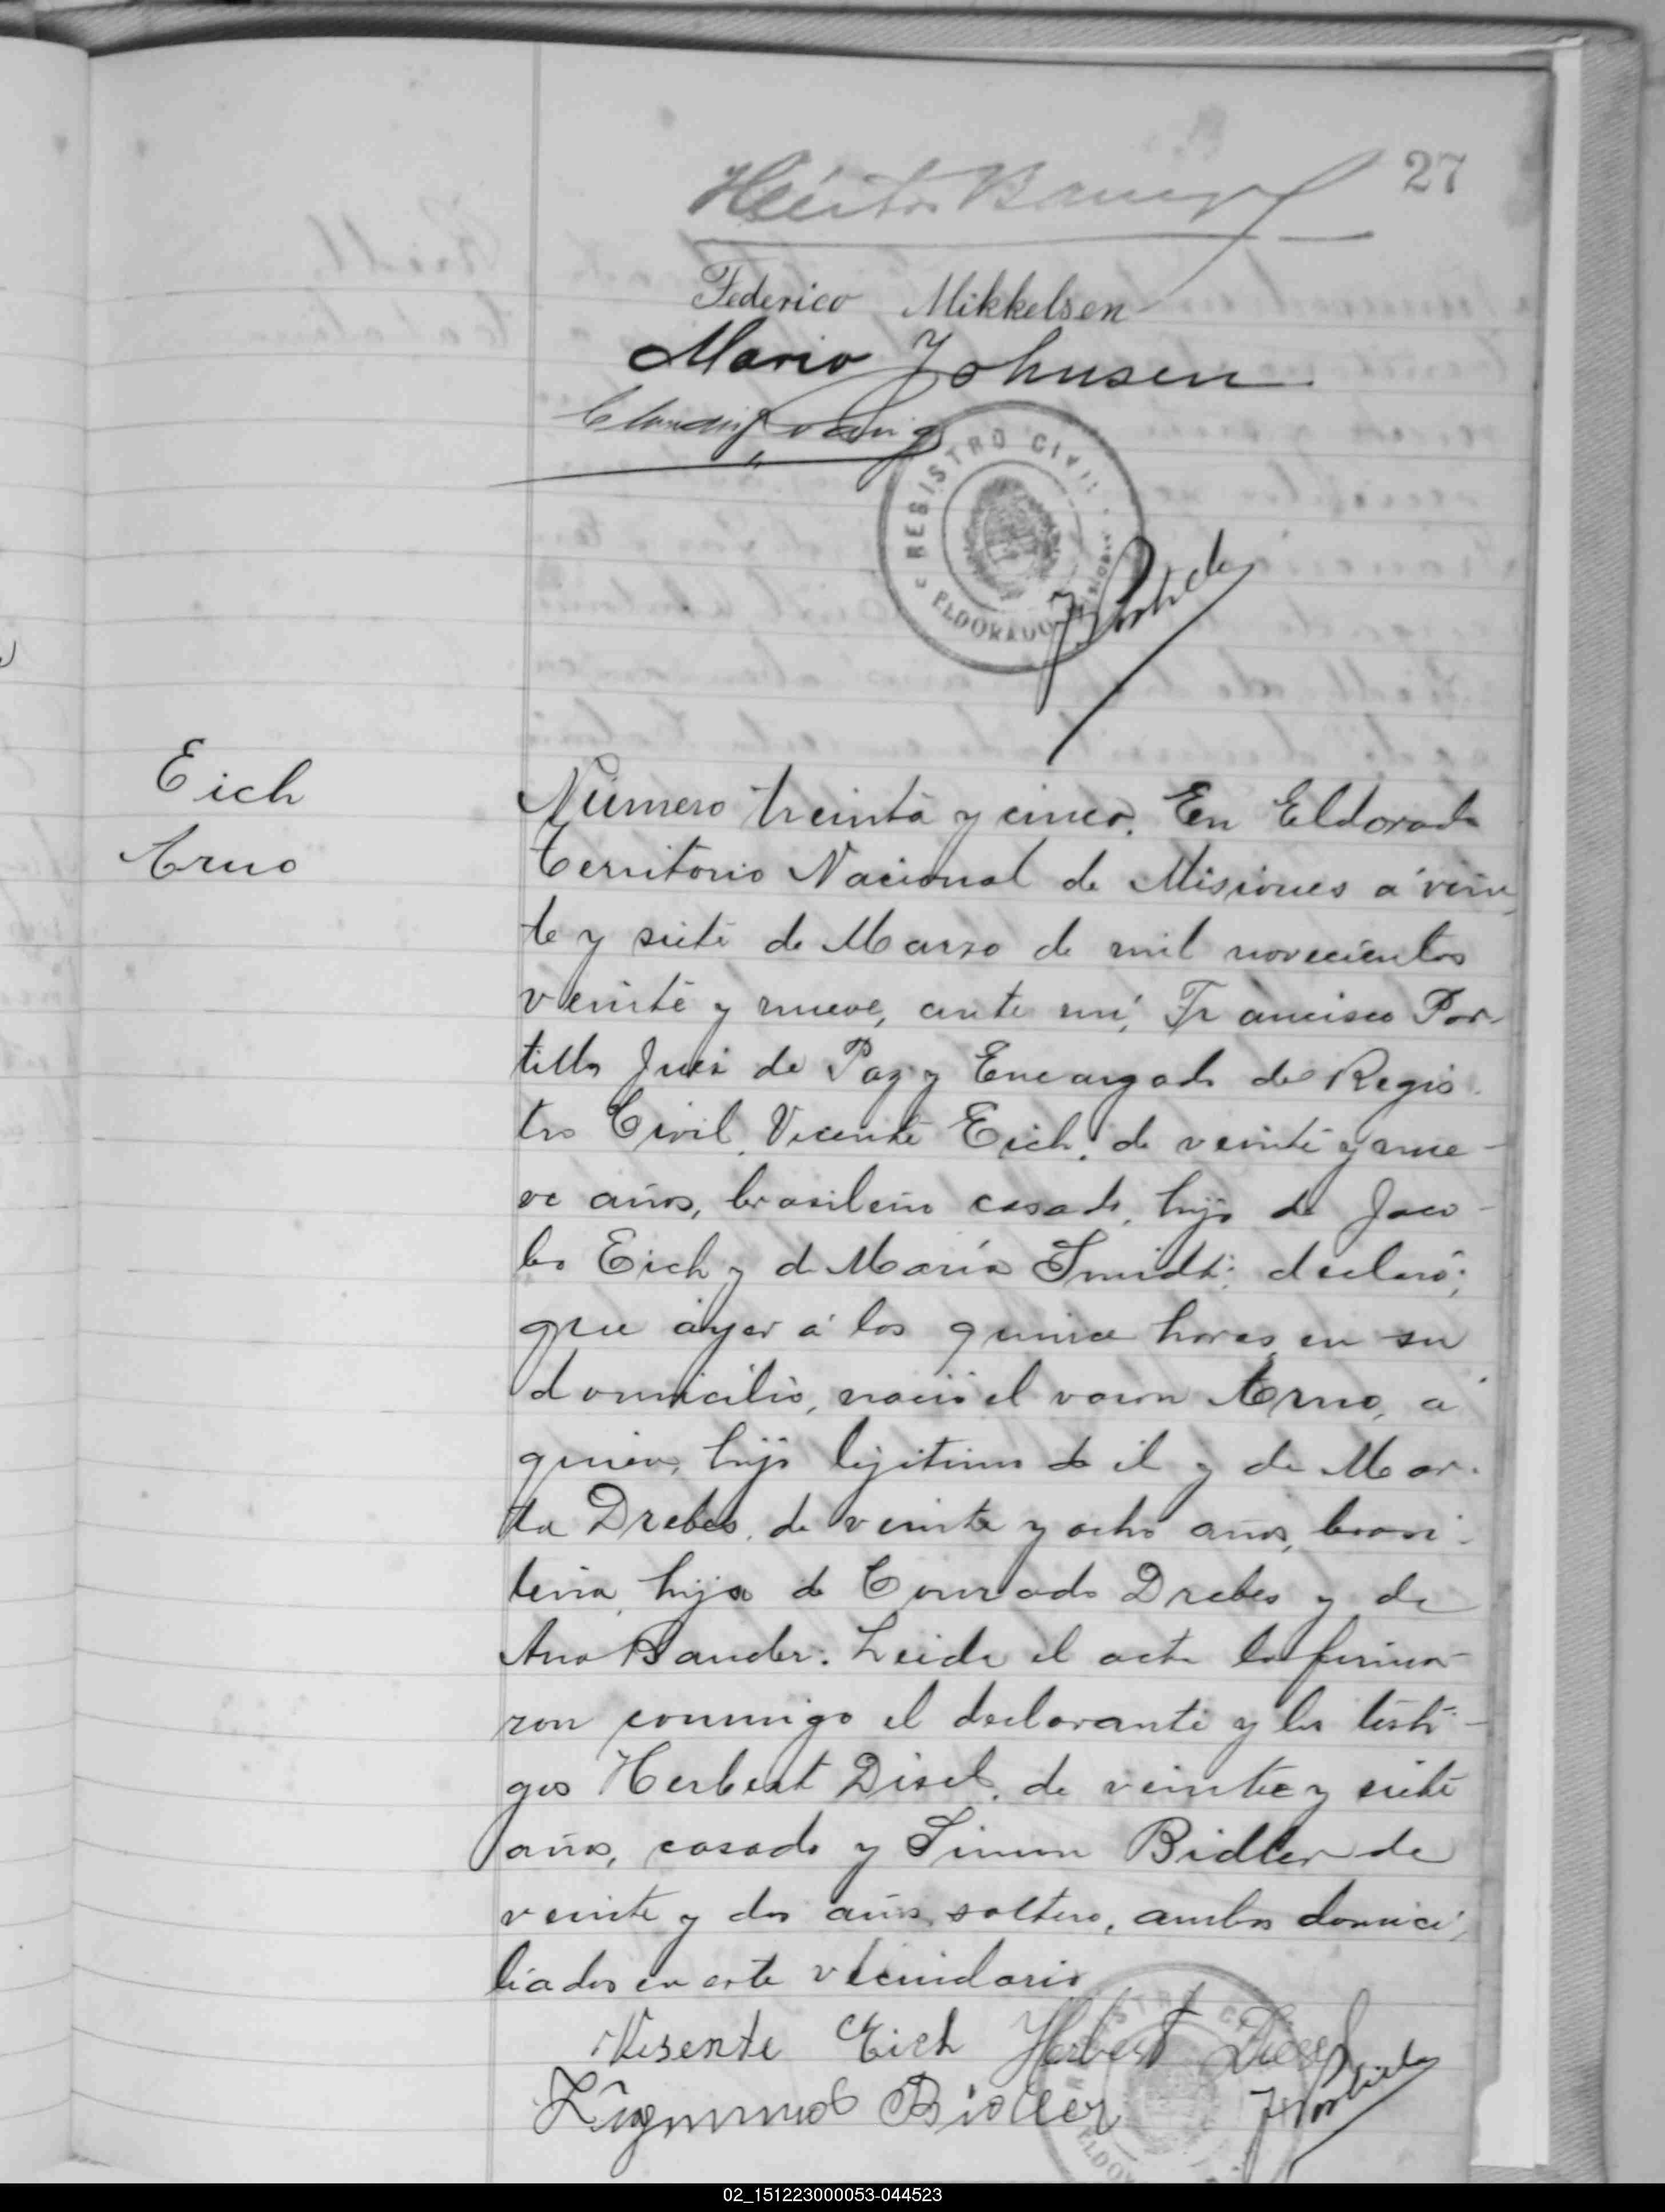 27
Federico Mikkelsen
Mario Johnsen
REGISTRO CIVIL
ELDORADO
Eich
Arno
Número treinta y cinco. En Eldorado
Territorio Nacional de Misiones á vein
te y siete de Marzo de mil novecientos
veinte y nueve, ante mí, Francisco Por-
tillo Juez de Paz y Encargado del Regis
tro Civil, Vicente Eich, de veinte y nue-
ve años, brasileño casado, hijo de Jaco-
bo Eich y de María Smidt; declaró;
que ayer á las quince horas, en su
domicilio, nació el varon Arno, á
quien, hijo lejitimo de él y de Mar-
ta Drebes, de veinte y ocho años, brasi-
leña, hija de Conrado Drebes y de
Ana Bander. Leida el acta la firma-
ron conmigo el declarante y los testi-
gos Herbert Disel, de veinte y siete
años, casado y Simon Bidler de
veinte y dos años, soltero, ambos domici-
liados en este vecindario
Visente Eich Herbert
Bidler
02_151223000053-044523